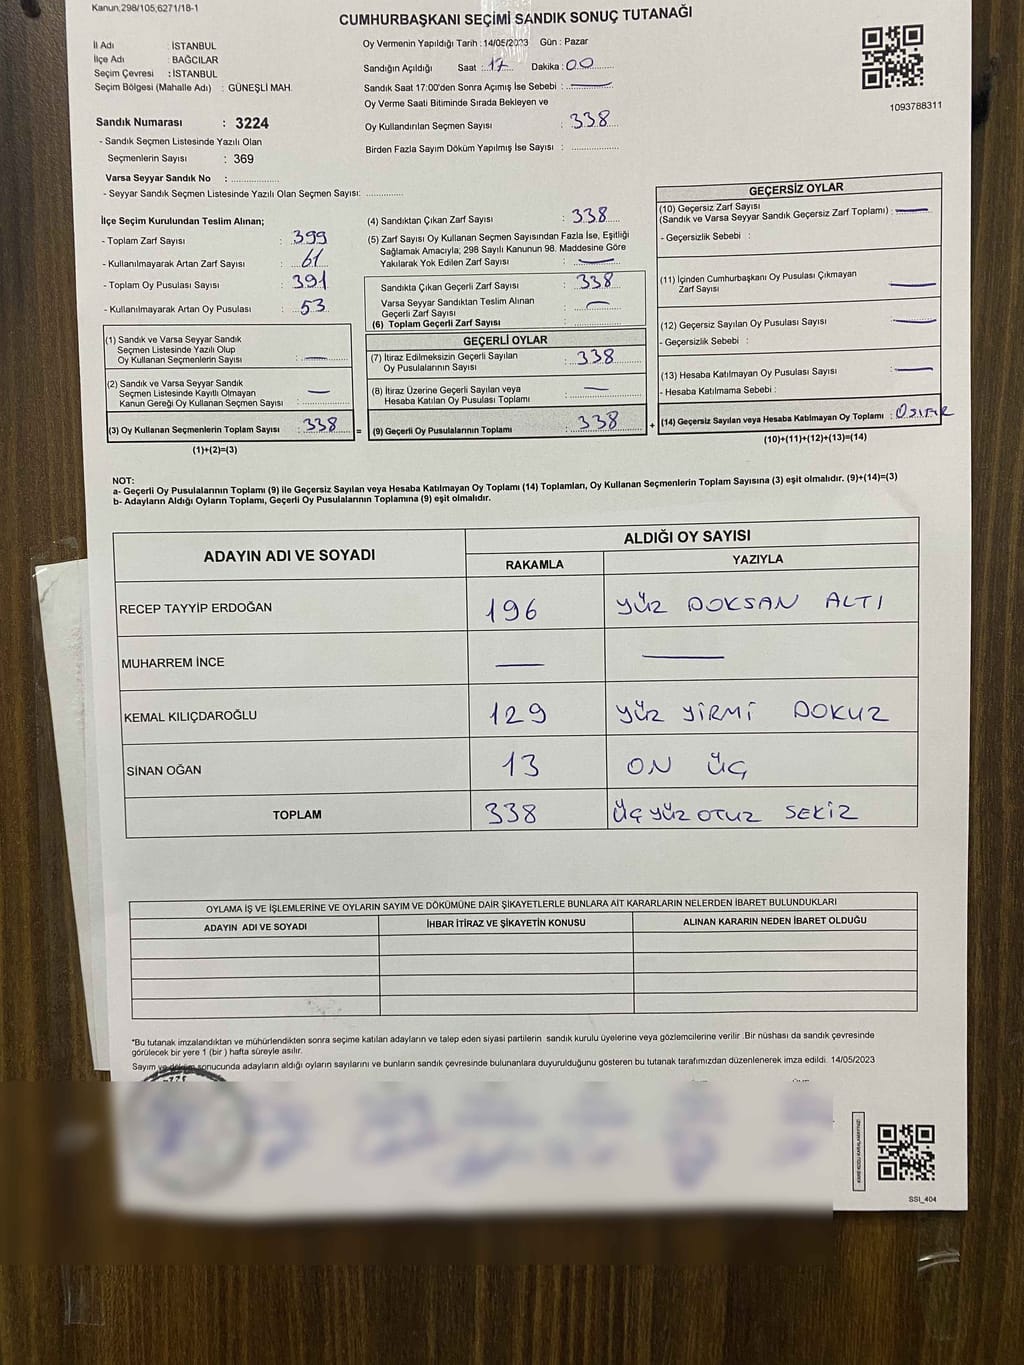 Kanun,298/105,6271/18-1
CUMHURBAŞKANI SEÇİMİ SANDIK SONUÇ TUTANAĞI
İl Adı : İSTANBUL
İlçe Adı : BAĞCILAR
Seçim Çevresi : İSTANBUL
Seçim Bölgesi (Mahalle Adı) : GÜNEŞLİ MAH.
Sandık Numarası : 3224
- Sandık Seçmen Listesinde Yazılı Olan
Seçmenlerin Sayısı : 369
Varsa Seyyar Sandık No :
- Seyyar Sandık Seçmen Listesinde Yazılı Olan Seçmen Sayısı:
Oy Vermenin Yapıldığı Tarih : 14/05/2023 Gün : Pazar
Sandığın Açıldığı Saat : 17 Dakika : 00
Sandık Saat 17:00'den Sonra Açımış İse Sebebi : —
Oy Verme Saati Bitiminde Sırada Bekleyen ve
Oy Kullandırılan Seçmen Sayısı : 338
Birden Fazla Sayım Döküm Yapılmış İse Sayısı :
1093788311
İlçe Seçim Kurulundan Teslim Alınan;
- Toplam Zarf Sayısı : 399
- Kullanılmayarak Artan Zarf Sayısı : 61
- Toplam Oy Pusulası Sayısı : 391
- Kullanılmayarak Artan Oy Pusulası : 53
(1) Sandık ve Varsa Seyyar Sandık
Seçmen Listesinde Yazılı Olup
Oy Kullanan Seçmenlerin Sayısı : —
(2) Sandık ve Varsa Seyyar Sandık
Seçmen Listesinde Kayıtlı Olmayan
Kanun Gereği Oy Kullanan Seçmen Sayısı : —
(3) Oy Kullanan Seçmenlerin Toplam Sayısı : 338 =
(1)+(2)=(3)
(4) Sandıktan Çıkan Zarf Sayısı : 338
(5) Zarf Sayısı Oy Kullanan Seçmen Sayısından Fazla İse, Eşitliği
Sağlamak Amacıyla; 298 Sayılı Kanunun 98. Maddesine Göre
Yakılarak Yok Edilen Zarf Sayısı : —
Sandıkta Çıkan Geçerli Zarf Sayısı : 338
Varsa Seyyar Sandıktan Teslim Alınan
Geçerli Zarf Sayısı : —
(6) Toplam Geçerli Zarf Sayısı
GEÇERLİ OYLAR
(7) İtiraz Edilmeksizin Geçerli Sayılan
Oy Pusulalarının Sayısı : 338
(8) İtiraz Üzerine Geçerli Sayılan veya
Hesaba Katılan Oy Pusulası Toplamı : —
(9) Geçerli Oy Pusulalarının Toplamı : 338 +
GEÇERSİZ OYLAR
(10) Geçersiz Zarf Sayısı
(Sandık ve Varsa Seyyar Sandık Geçersiz Zarf Toplamı) : —
- Geçersizlik Sebebi :
(11) İçinden Cumhurbaşkanı Oy Pusulası Çıkmayan
Zarf Sayısı : —
(12) Geçersiz Sayılan Oy Pusulası Sayısı : —
- Geçersizlik Sebebi :
(13) Hesaba Katılmayan Oy Pusulası Sayısı : —
- Hesaba Katılmama Sebebi :
(14) Geçersiz Sayılan veya Hesaba Katılmayan Oy Toplamı : 0 SIFIR
(10)+(11)+(12)+(13)=(14)
NOT:
a- Geçerli Oy Pusulalarının Toplamı (9) ile Geçersiz Sayılan veya Hesaba Katılmayan Oy Toplamı (14) Toplamları, Oy Kullanan Seçmenlerin Toplam Sayısına (3) eşit olmalıdır. (9)+(14)=(3)
b- Adayların Aldığı Oyların Toplamı, Geçerli Oy Pusulalarının Toplamına (9) eşit olmalıdır.
ADAYIN ADI VE SOYADI ALDIĞI OY SAYISI
RAKAMLA YAZIYLA
RECEP TAYYİP ERDOĞAN 196 YÜZ DOKSAN ALTI
MUHARREM İNCE — —
KEMAL KILIÇDAROĞLU 129 YÜZ YİRMİ DOKUZ
SİNAN OĞAN 13 ON ÜÇ
TOPLAM 338 ÜÇ YÜZ OTUZ SEKİZ
OYLAMA İŞ VE İŞLEMLERİNE VE OYLARIN SAYIM VE DÖKÜMÜNE DAİR ŞİKAYETLERLE BUNLARA AİT KARARLARIN NELERDEN İBARET BULUNDUKLARI
ADAYIN ADI VE SOYADI İHBAR İTİRAZ VE ŞİKAYETİN KONUSU ALINAN KARARIN NEDEN İBARET OLDUĞU
*Bu tutanak imzalandıktan ve mühürlendikten sonra seçime katılan adayların ve talep eden siyasi partilerin sandık kurulu üyelerine veya gözlemcilerine verilir .Bir nüshası da sandık çevresinde
görülecek bir yere 1 (bir ) hafta süreyle asılır.
Sayım ve döküm sonucunda adayların aldığı oyların sayılarını ve bunların sandık çevresinde bulunanlara duyurulduğunu gösteren bu tutanak tarafımızdan düzenlenerek imza edildi. 14/05/2023
SSI_404